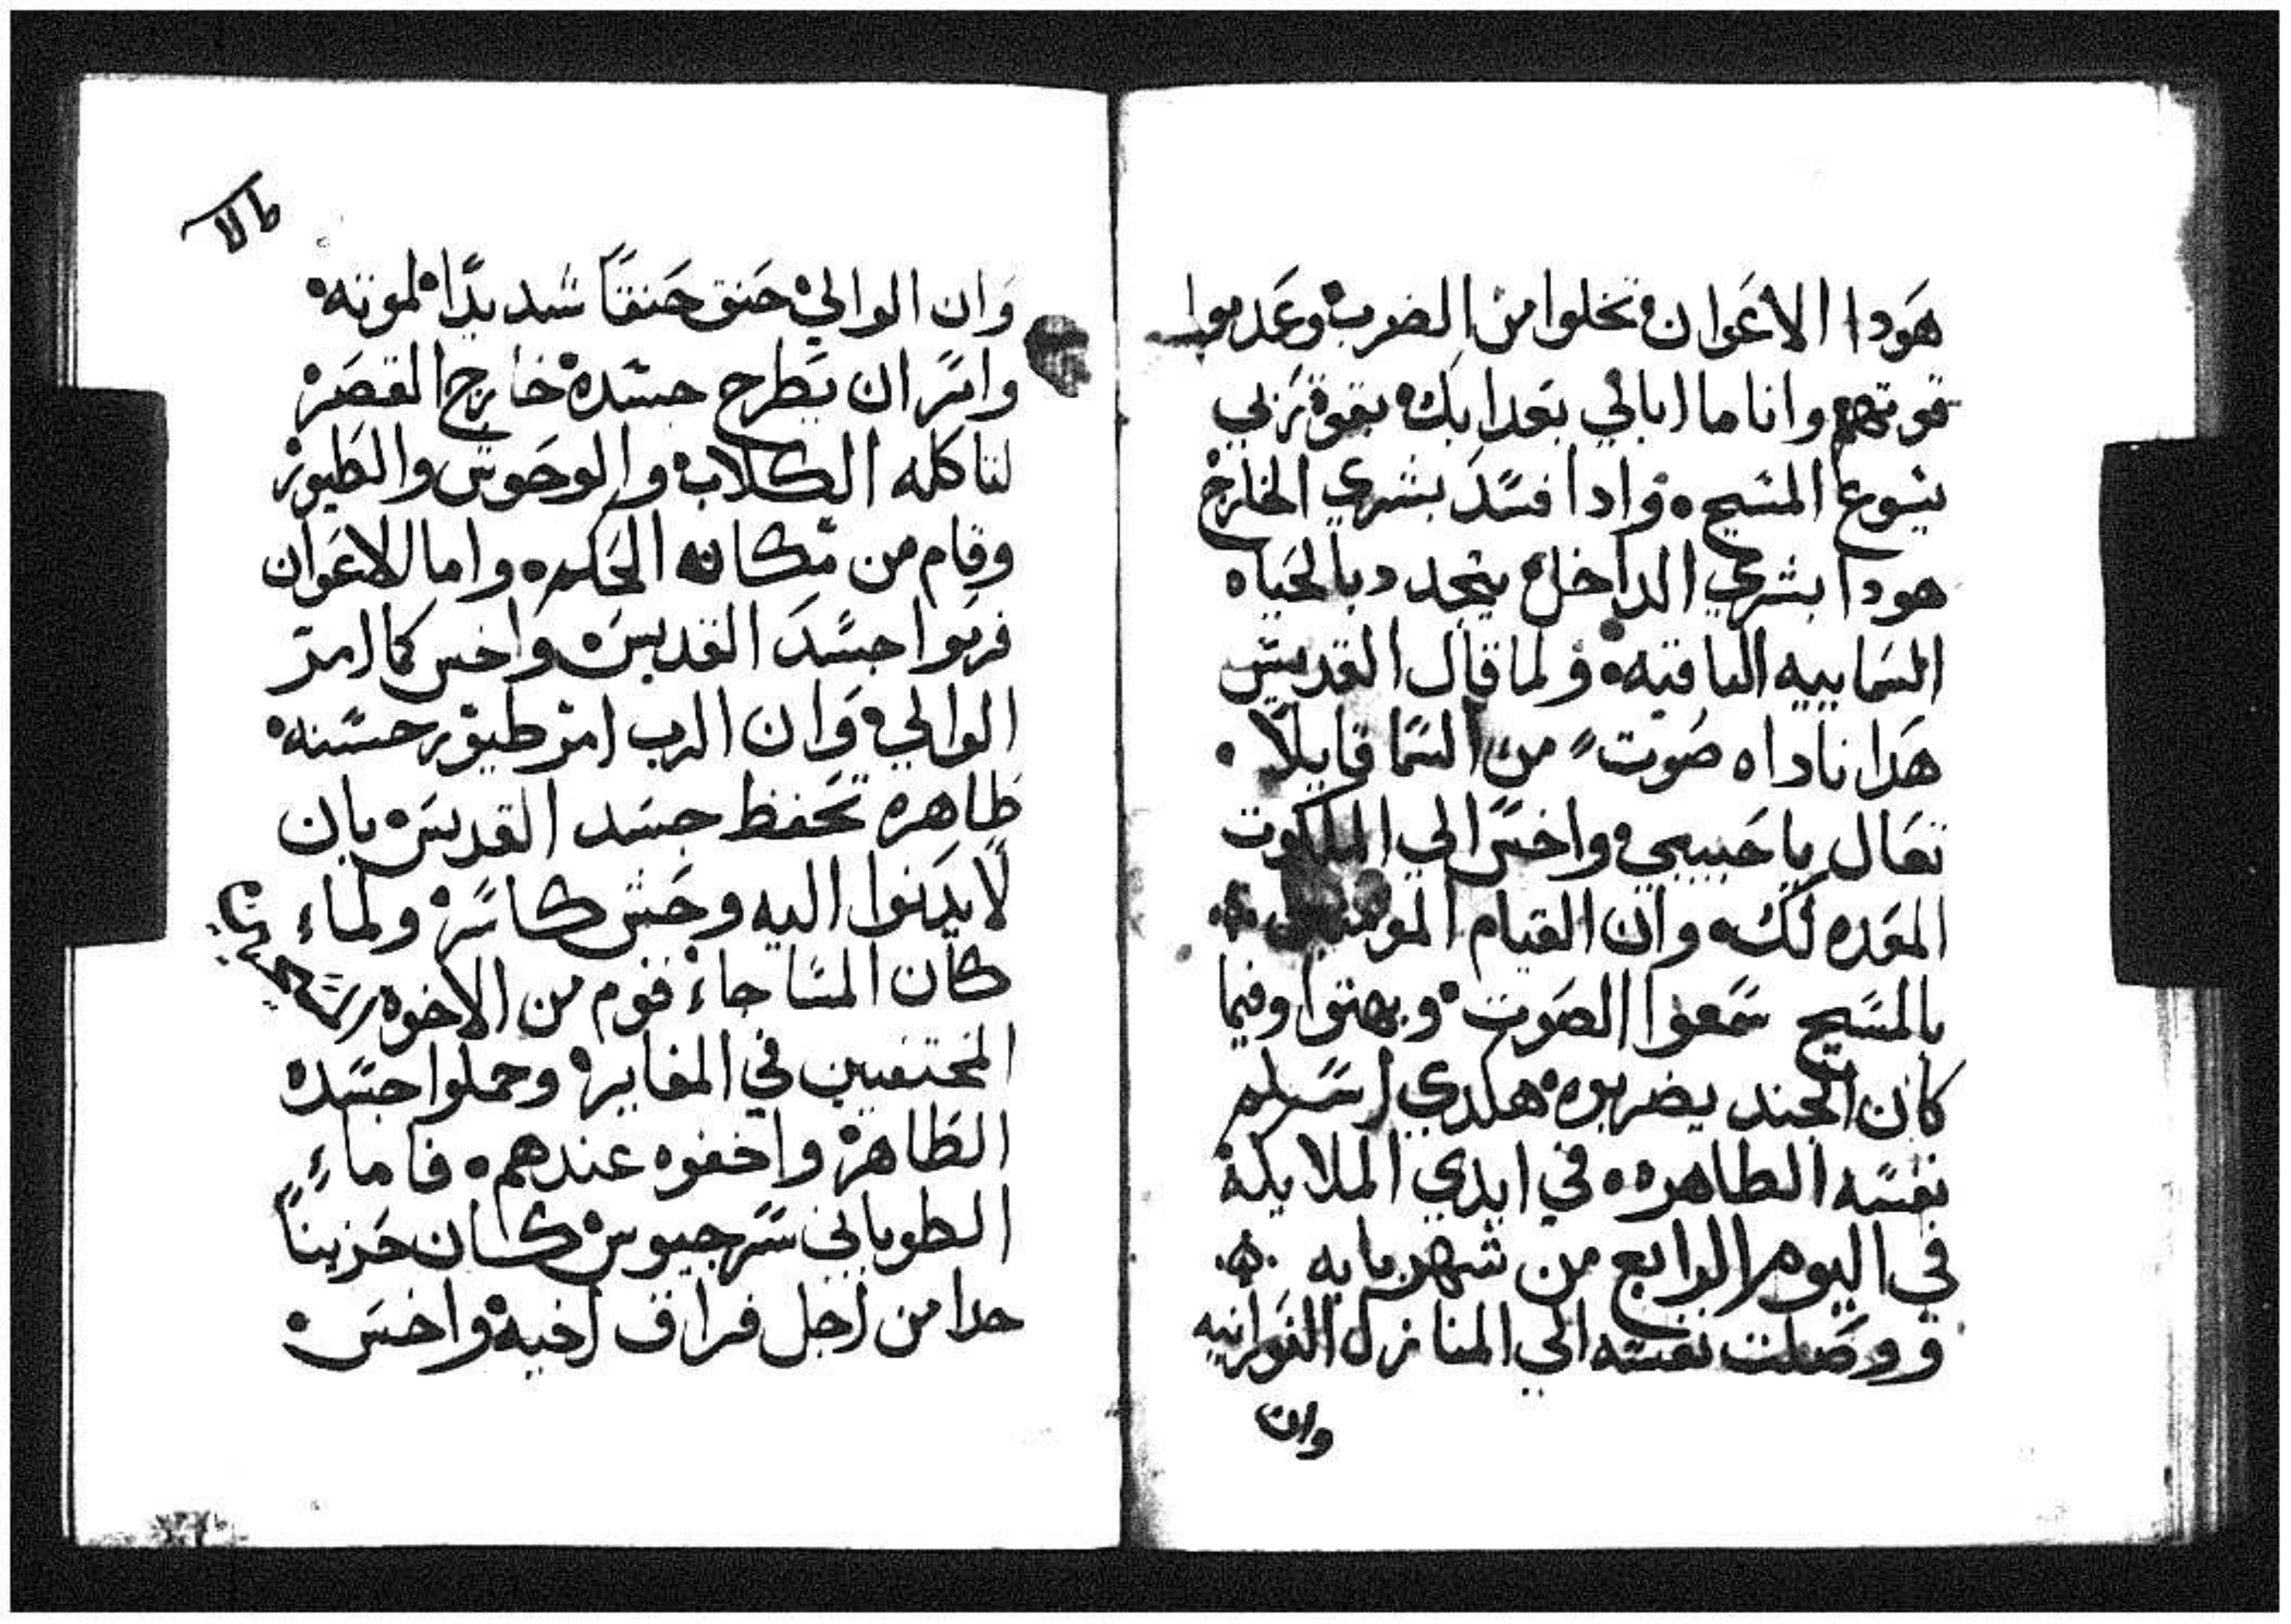 هودا الاعوان تخلوا من الضرب وعدموا
قوتهم وانا ما ابالي بعدابك بقوة ربي
يسوع المسيح وادا فسد بشري الخارج
هودا بشري الداخل يتجدد بالحياه
السماييه الباقيه ولما قال القديس
هدا ناداه صوت من السما قايلا
تعال يا حبيبي واخس الي الملكوت
المعده لك وان القيام المومنين
بالمسيح سمعوا الصوت وبهتوا وفيما
كان الجند يضربوه هكدي اسلم
نفسه الطاهره في ايدي الملايكة
في اليوم الرابع من شهر بابه
ووصلت نفسه الي المنازل النورانيه
وان
وان الوالي حنق حنقا شديدا لموته
وامر ان يطرح جسده خارج القصر
لتاكله الكلاب والوحوش والطيور
وقام من مكانه الحكم واما الاعوان
فرموا جسد القديس واخس كما امر
الوالي وان الرب امر طيور حسنه
ظاهره تحفظ جسد القديس بان
لا يدنوا اليه وحش كاسر ولماء
كان المسا جاء قوم من الاخوه
المختفيين في المغاير وحملوا جسده
الطاهر واخفوه عندهم فاماء
الطوباني سرجيوس كان حزينا
جدا من اجل فراق اخيه واخس